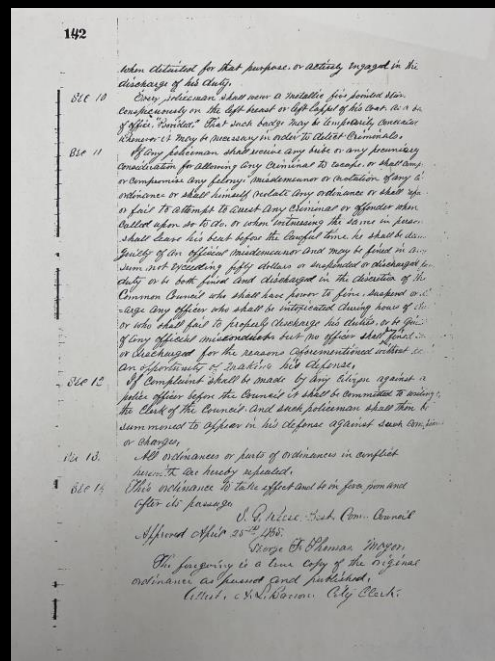 142
when detailed for that purpose or actively engaged in the
discharge of his duty.
Sec 10 Every policeman shall wear a metallic five pointed star
conspicuously on the left breast or left lappel of his coat, as a
of office. Provided, that such badge may be temporarily concealed
whenever it may be necessary in order to detect Criminals.
Sec 11 If any policeman shall receive any bribe or any pecuniary
consideration for allowing any Criminal to escape, or shall
or compromise any felony misdemeanor or violation of any
ordinance or shall himself violate any ordinance or shall
or fail to attempt to arrest any criminal or offender when
called upon so to do, or when witnessing the same in person
shall leave his beat before the lawful time, he shall be
guilty of an official misdemeanor and may be fined in a
sum not exceeding fifty dollars or suspended or discharged
duty or be both fined and discharged in the discretion of the
Common Council who shall have power to fine, suspend or
any officer who shall be intoxicated during hours of
or who shall fail to properly discharge his duties, or be
of any official misconduct but no officer shall be fined
or discharged for the reasons aforementioned without
an opportunity of making his defense.
Sec 12 If Complaint shall be made by any Citizen against a
police officer before the Council it shall be committed to writing
the Clerk of the Council and such policeman shall then be
summoned to appear in his defense against such
or charges.
Sec 13. All ordinances or parts of ordinances in conflict
herewith are hereby repealed.
Sec 14 This ordinance to take effect and be in force from and
after its passage
Pres. Com. Council
Approved April 25th
George Mayor.
The foregoing is a true copy of the original
ordinance as passed and published.
Attest, City Clerk.